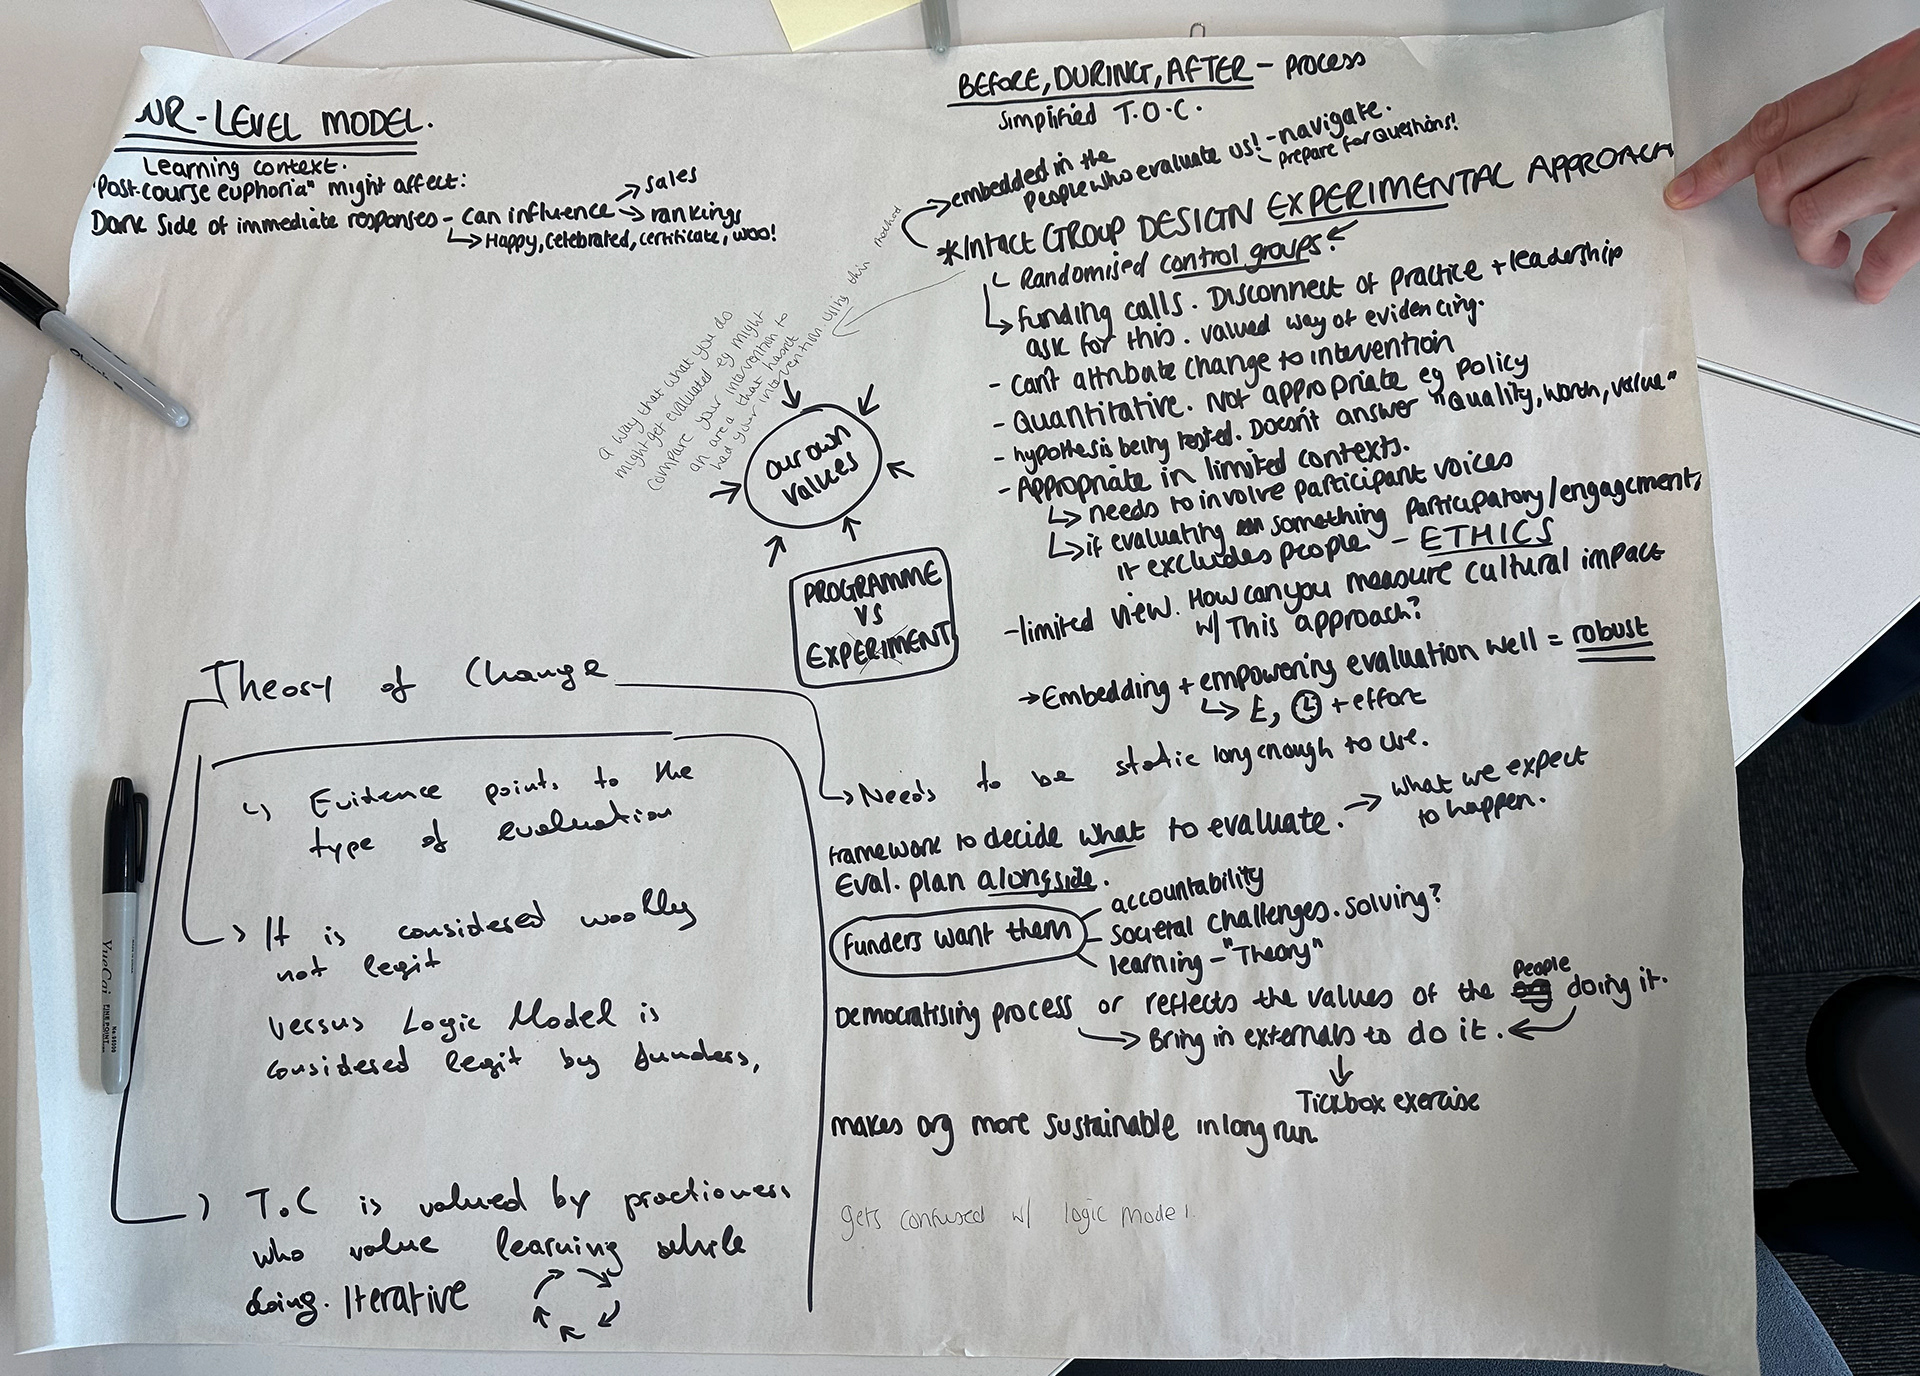 UR-LEVEL MODEL.
Learning context.
"Post-course euphoria" might affect:
Dark Side of immediate responses - can influence → sales
→ rankings
↳ Happy, celebrated, certificate, woo!
BEFORE, DURING, AFTER - process
simplified T.O.C.
→ embedded in the
people who evaluate us! - navigate.
- prepare for questions!
*Intact GROUP DESIGN EXPERIMENTAL APPROACH
↳ Randomised control groups.
↳ funding calls. Disconnect of practice + leadership
ask for this. valued way of evidencing.
- can't attribute change to intervention
- Quantitative. Not appropriate eg policy
- hypothesis being tested. Doesn't answer "Quality, worth, value"
- Appropriate in limited contexts.
↳ needs to involve participant voices
↳ if evaluating something participatory/engagement,
it excludes people - ETHICS
- limited view. How can you measure cultural impact
w/ This approach?
→ Embedding + empowering evaluation well = robust
↳ £, + effort
a way that what you do
might get evaluated eg might
compare your intervention to
an area that hasn't
had your intervention using this method
our own
values
PROGRAMME
VS
EXPERIMENT
Theory of Change
↳ Evidence points to the
type of evaluation
→ It is considered woolly
not legit
versus Logic Model is
considered legit by funders,
T.o.C is valued by practioners
who value learning while
doing. Iterative
→ Needs to be static long enough to use.
framework to decide what to evaluate. → what we expect
to happen.
Eval. plan alongside.
funders want them
- accountability
- societal challenges. solving?
- learning - "Theory"
Democratising process or reflects the values of the people doing it.
→ Bring in externals to do it.
↓
Tickbox exercise
makes org more sustainable in long run
gets confused w/ logic model
YueCai
FINE POINT